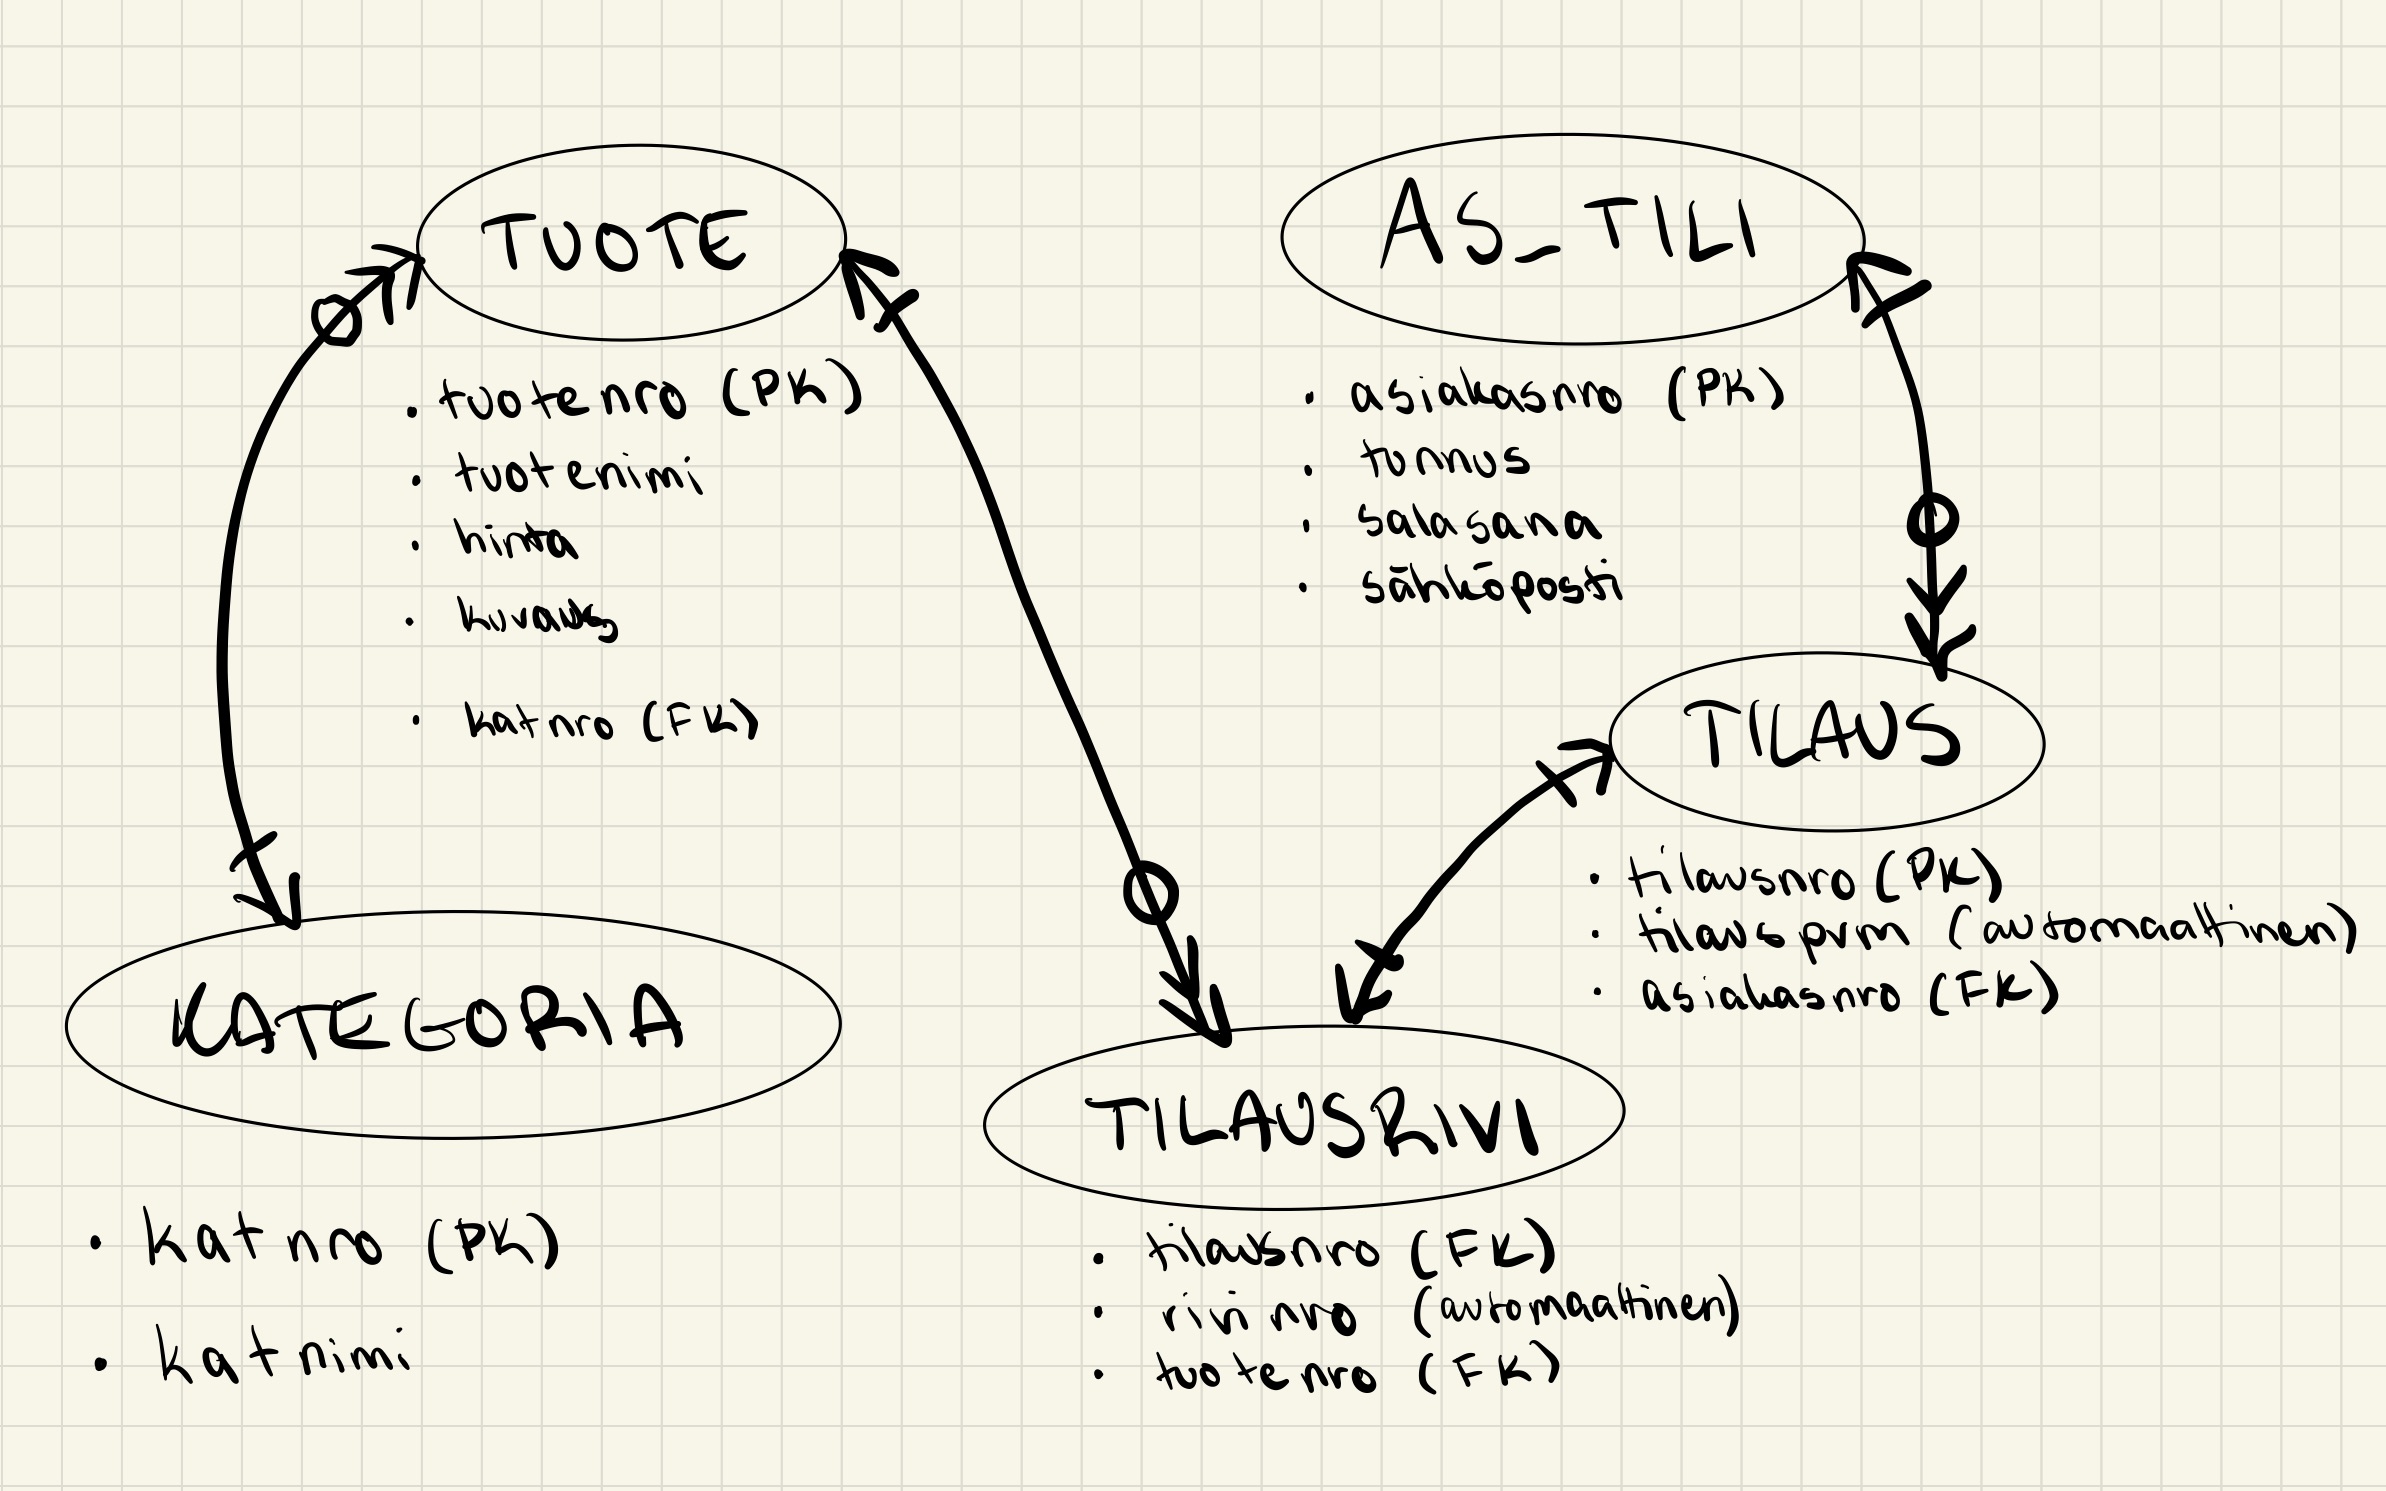 TUOTE
• tuotenro (PK)
• tuotenimi
• hinta
• kuvaus
• katnro (FK)
AS_TILI
• asiakasnro (PK)
• tunnus
• salasana
• sähköposti
TILAUS
• tilausnro (PK)
• tilauspvm (automaattinen)
• asiakasnro (FK)
KATEGORIA
• katnro (PK)
• katnimi
TILAUSRIVI
• tilausnro (FK)
• rivinro (automaattinen)
• tuotenro (FK)